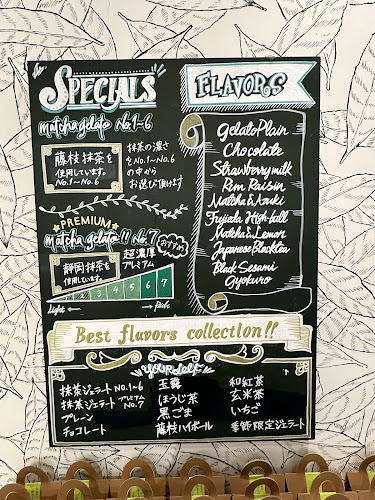 the
SPECIALS
matcha gelato No.1~6
藤枝抹茶を
使用しています。
No.1~No.6
抹茶の濃さ
をNo.1~No.6
の中から
お選び頂けます
★PREMIUM★
matcha gelato!! No.7
おすすめ
静岡抹茶を
使用しています。
超濃厚
プレミアム
2 3 4 5 6 7
Light ← → Rich
FLAVORS
Gelato Plain
Chocolate
Strawberry milk
Rum Raisin
Matcha & Azuki
Fujieda High-ball
Matcha & Lemon
Japanese Blacktea
Black Sesami
Gyokuro
Best flavors collection!!
YOURSELF
抹茶ジェラート NO.1~6
抹茶ジェラート プレミアム NO.7
プレーン
チョコレート
玉露
ほうじ茶
黒ごま
藤枝ハイボール
和紅茶
玄米茶
いちご
季節限定ジェラート